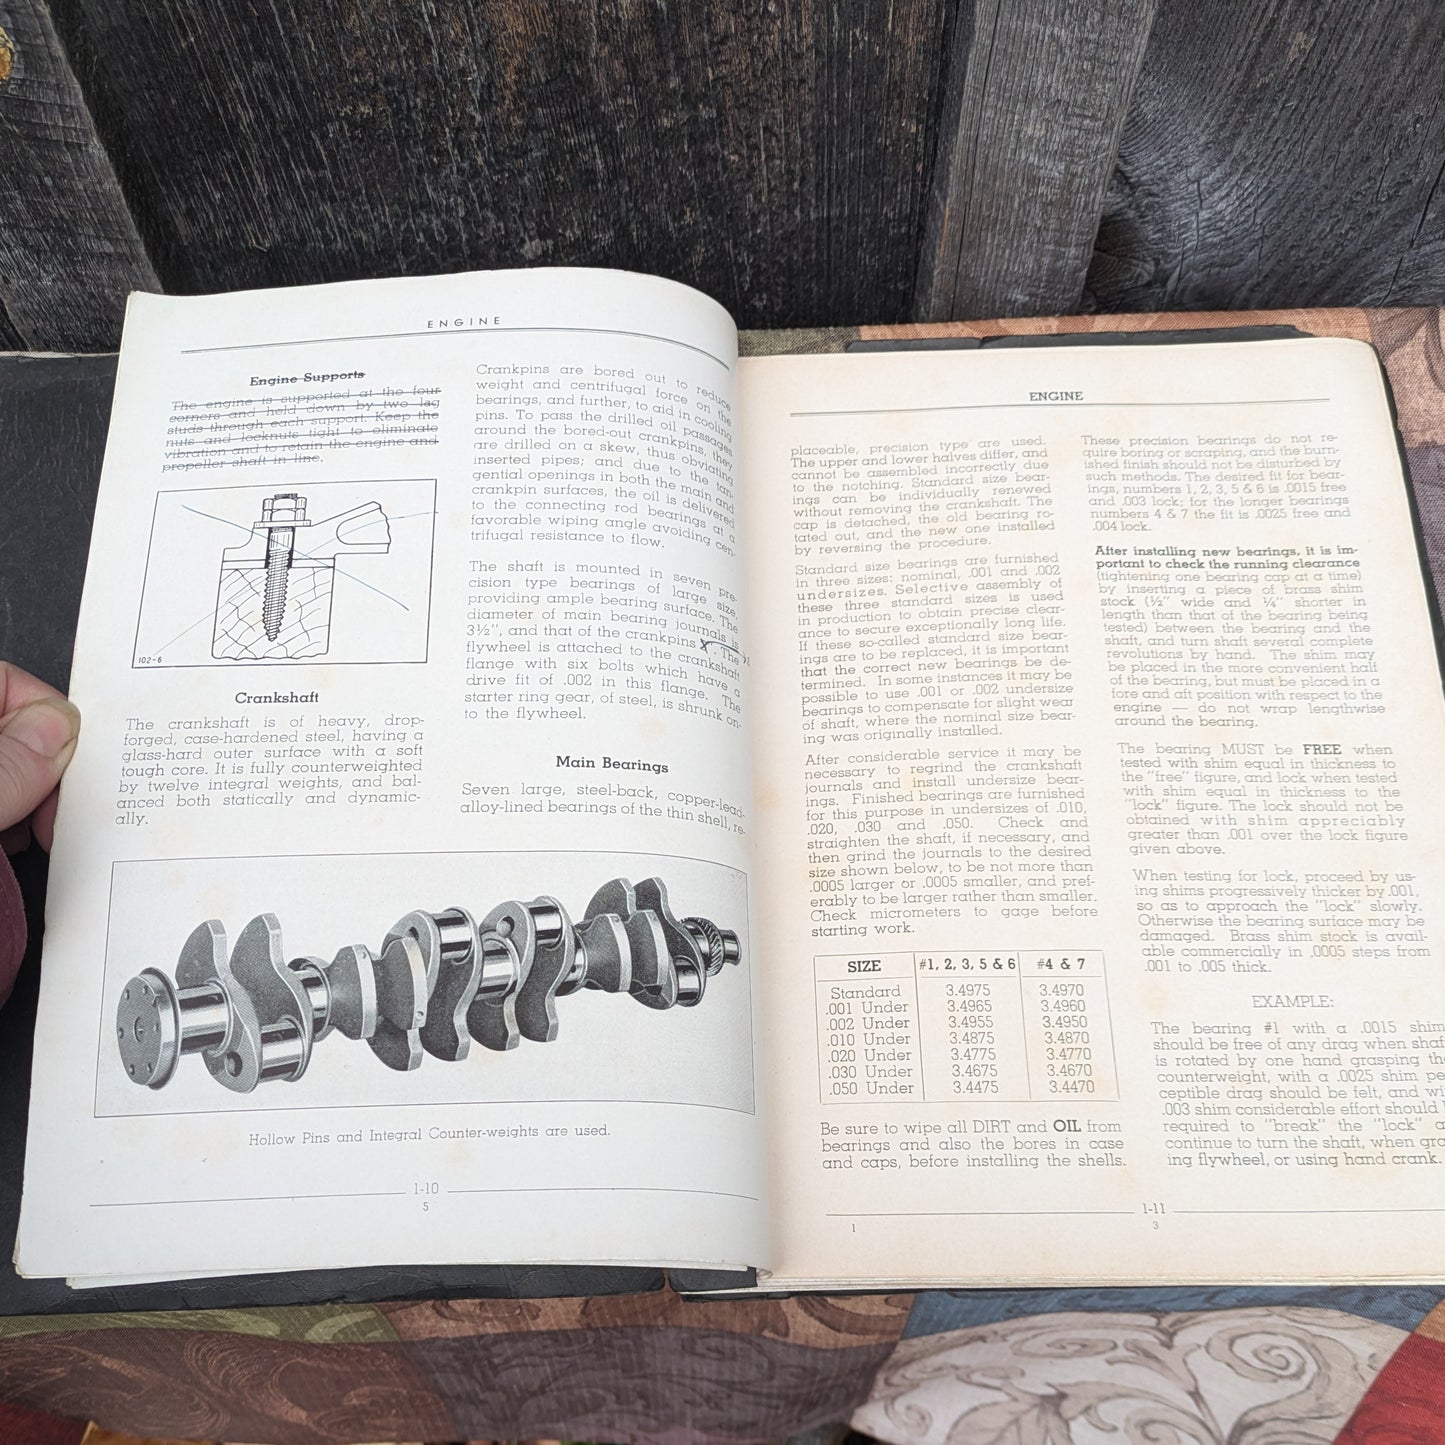 ENGINE
Engine Supports
The engine is supported at the four
corners and held down by two lag
studs through each support. Keep the
nuts and locknuts tight to eliminate
vibration and to retain the engine and
propeller shaft in line.
102-6
Crankshaft
The crankshaft is of heavy, drop-
forged, case-hardened steel, having a
glass-hard outer surface with a soft
tough core. It is fully counterweighted
by twelve integral weights, and bal-
anced both statically and dynamic-
ally.
Crankpins are bored out to reduce
weight and centrifugal force on the
bearings, and further, to aid in cooling
pins. To pass the drilled oil passages
around the bored-out crankpins, they
are drilled on a skew, thus obviating
inserted pipes; and due to the tan-
gential openings in both the main and
crankpin surfaces, the oil is delivered
to the connecting rod bearings at a
favorable wiping angle avoiding cen-
trifugal resistance to flow.
The shaft is mounted in seven pre-
cision type bearings of large size,
providing ample bearing surface. The
diameter of main bearing journals is
3½", and that of the crankpins . The
flywheel is attached to the crankshaft
flange with six bolts which have a
drive fit of .002 in this flange. The
starter ring gear, of steel, is shrunk on-
to the flywheel.
Main Bearings
Seven large, steel-back, copper-lead-
alloy-lined bearings of the thin shell, re-
Hollow Pins and Integral Counter-weights are used.
1-10
5
ENGINE
placeable, precision type are used.
The upper and lower halves differ, and
cannot be assembled incorrectly due
to the notching. Standard size bear-
ings can be individually renewed
without removing the crankshaft. The
cap is detached, the old bearing ro-
tated out, and the new one installed
by reversing the procedure.
Standard size bearings are furnished
in three sizes: nominal, .001 and .002
undersizes. Selective assembly of
these three standard sizes is used
in production to obtain precise clear-
ance to secure exceptionally long life.
If these so-called standard size bear-
ings are to be replaced, it is important
that the correct new bearings be de-
termined. In some instances it may be
possible to use .001 or .002 undersize
bearings to compensate for slight wear
of shaft, where the nominal size bear-
ing was originally installed.
After considerable service it may be
necessary to regrind the crankshaft
journals and install undersize bear-
ings. Finished bearings are furnished
for this purpose in undersizes of .010,
.020, .030 and .050. Check and
straighten the shaft, if necessary, and
then grind the journals to the desired
size shown below, to be not more than
.0005 larger or .0005 smaller, and pref-
erably to be larger rather than smaller.
Check micrometers to gage before
starting work.
SIZE #1, 2, 3, 5 & 6 #4 & 7
Standard 3.4975 3.4970
.001 Under 3.4965 3.4960
.002 Under 3.4955 3.4950
.010 Under 3.4875 3.4870
.020 Under 3.4775 3.4770
.030 Under 3.4675 3.4670
.050 Under 3.4475 3.4470
Be sure to wipe all DIRT and OIL from
bearings and also the bores in case
and caps, before installing the shells.
These precision bearings do not re-
quire boring or scraping, and the burn-
ished finish should not be disturbed by
such methods. The desired fit for bear-
ings, numbers 1, 2, 3, 5 & 6 is .0015 free
and .003 lock; for the longer bearings
numbers 4 & 7 the fit is .0025 free and
.004 lock.
After installing new bearings, it is im-
portant to check the running clearance
(tightening one bearing cap at a time)
by inserting a piece of brass shim
stock (½" wide and ¼" shorter in
length than that of the bearing being
tested) between the bearing and the
shaft, and turn shaft several complete
revolutions by hand. The shim may
be placed in the more convenient half
of the bearing, but must be placed in a
fore and aft position with respect to the
engine — do not wrap lengthwise
around the bearing.
The bearing MUST be FREE when
tested with shim equal in thickness to
the "free" figure, and lock when tested
with shim equal in thickness to the
"lock" figure. The lock should not be
obtained with shim appreciably
greater than .001 over the lock figure
given above.
When testing for lock, proceed by us-
ing shims progressively thicker by .001,
so as to approach the "lock" slowly.
Otherwise the bearing surface may be
damaged. Brass shim stock is avail-
able commercially in .0005 steps from
.001 to .005 thick.
EXAMPLE:
The bearing #1 with a .0015 shim
should be free of any drag when shaf
is rotated by one hand grasping th
counterweight, with a .0025 shim pe
ceptible drag should be felt, and wi
.003 shim considerable effort should
required to "break" the "lock" a
continue to turn the shaft, when gra
ing flywheel, or using hand crank.
1-11
1 3